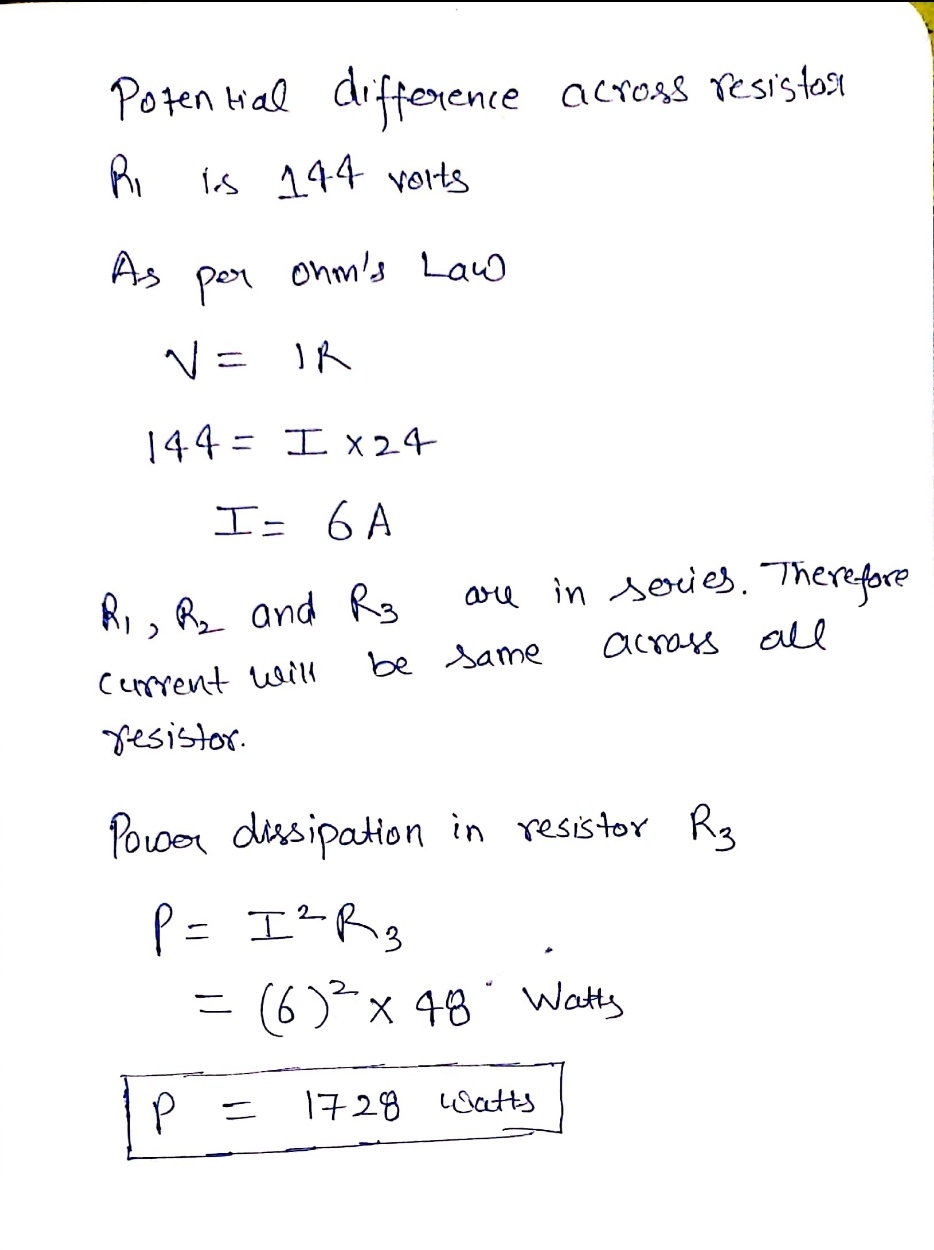 Potential difference across resistor
R₁ is 144 volts
As per ohm's Law
V = IR
144 = I x 24
I = 6 A
R₁, R₂ and R₃ are in series. Therefore
current will be same across all
resistor.
Power dissipation in resistor R₃
P = I² R₃
= (6)² x 48 Watts
P = 1728 Watts